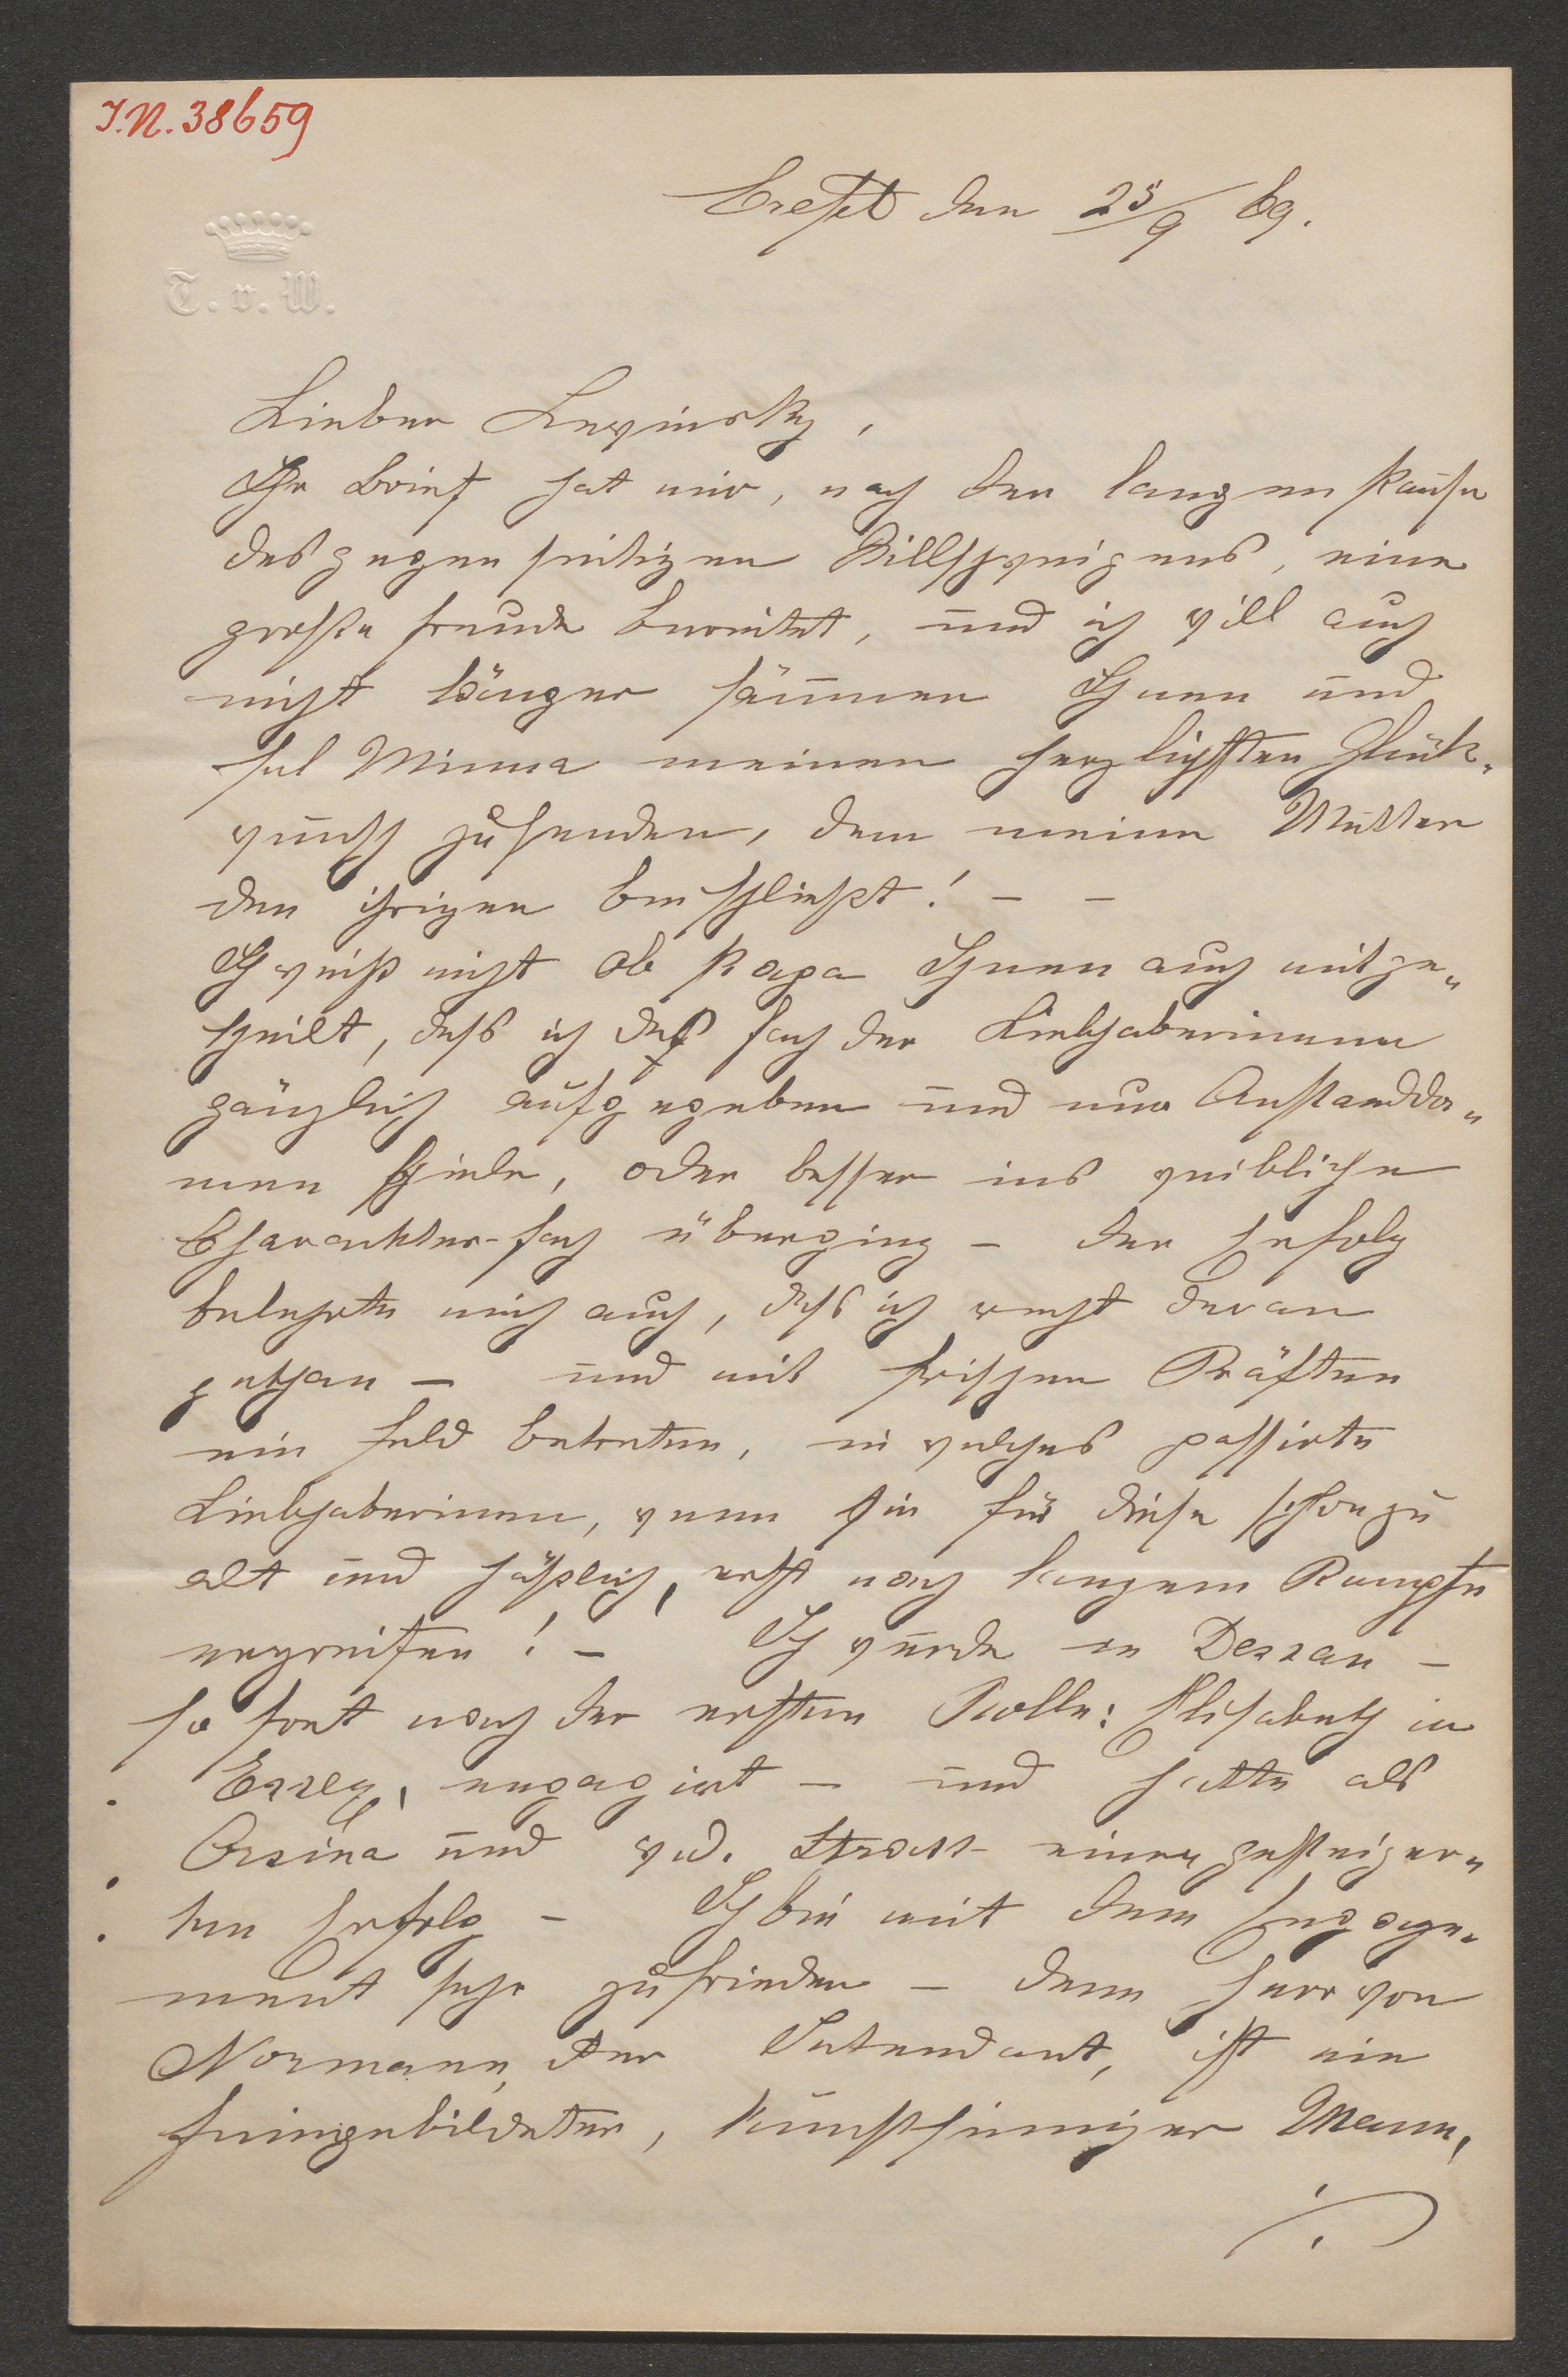 I.N. 38659
Crefeld den 25/9 69.
T. v. W.
Lieber Lewinsky,
Ihr Brief hat mir, nach der langen Pause
des gegenseitigen Stillschweigens, eine
große Freude bereitet, und ich will auch
nicht länger säumen Ihnen und
Frl Minna meinen herzlichsten Glück„
wunsch zu senden, dem meine Mutter
den ihrigen beischließt! – –
Ich weiß nicht ob Papa Ihnen auch mitge„
theilt, daß ich das Fach der Liebhaberinnen
gänzlich aufgegeben und nur Anstandda„
men spiele, oder besser ins weibliche
Charackter-Fach überging – der Erfolg
belehrte mich auch, daß ich recht daran
gethan – und mit frischen Kräften
ein Feld betreten, in welches passirte
Liebhaberinnen, wenn sie für diese schon zu
alt und häßlich, erst nach langem Kampfe
ergreifen! – Ich wurde in Dessau –
sofort nach der ersten Rolle: Elisabeth in
Essex, engagirt – und hatte als
Orsina und gesteiger„
ten Erfolg – Ich bin mit dem Engage„
ment sehr zufrieden – denn Herr von
Normann, der Intendant, ist ein
feingebildeter, kunstsinniger Mann,